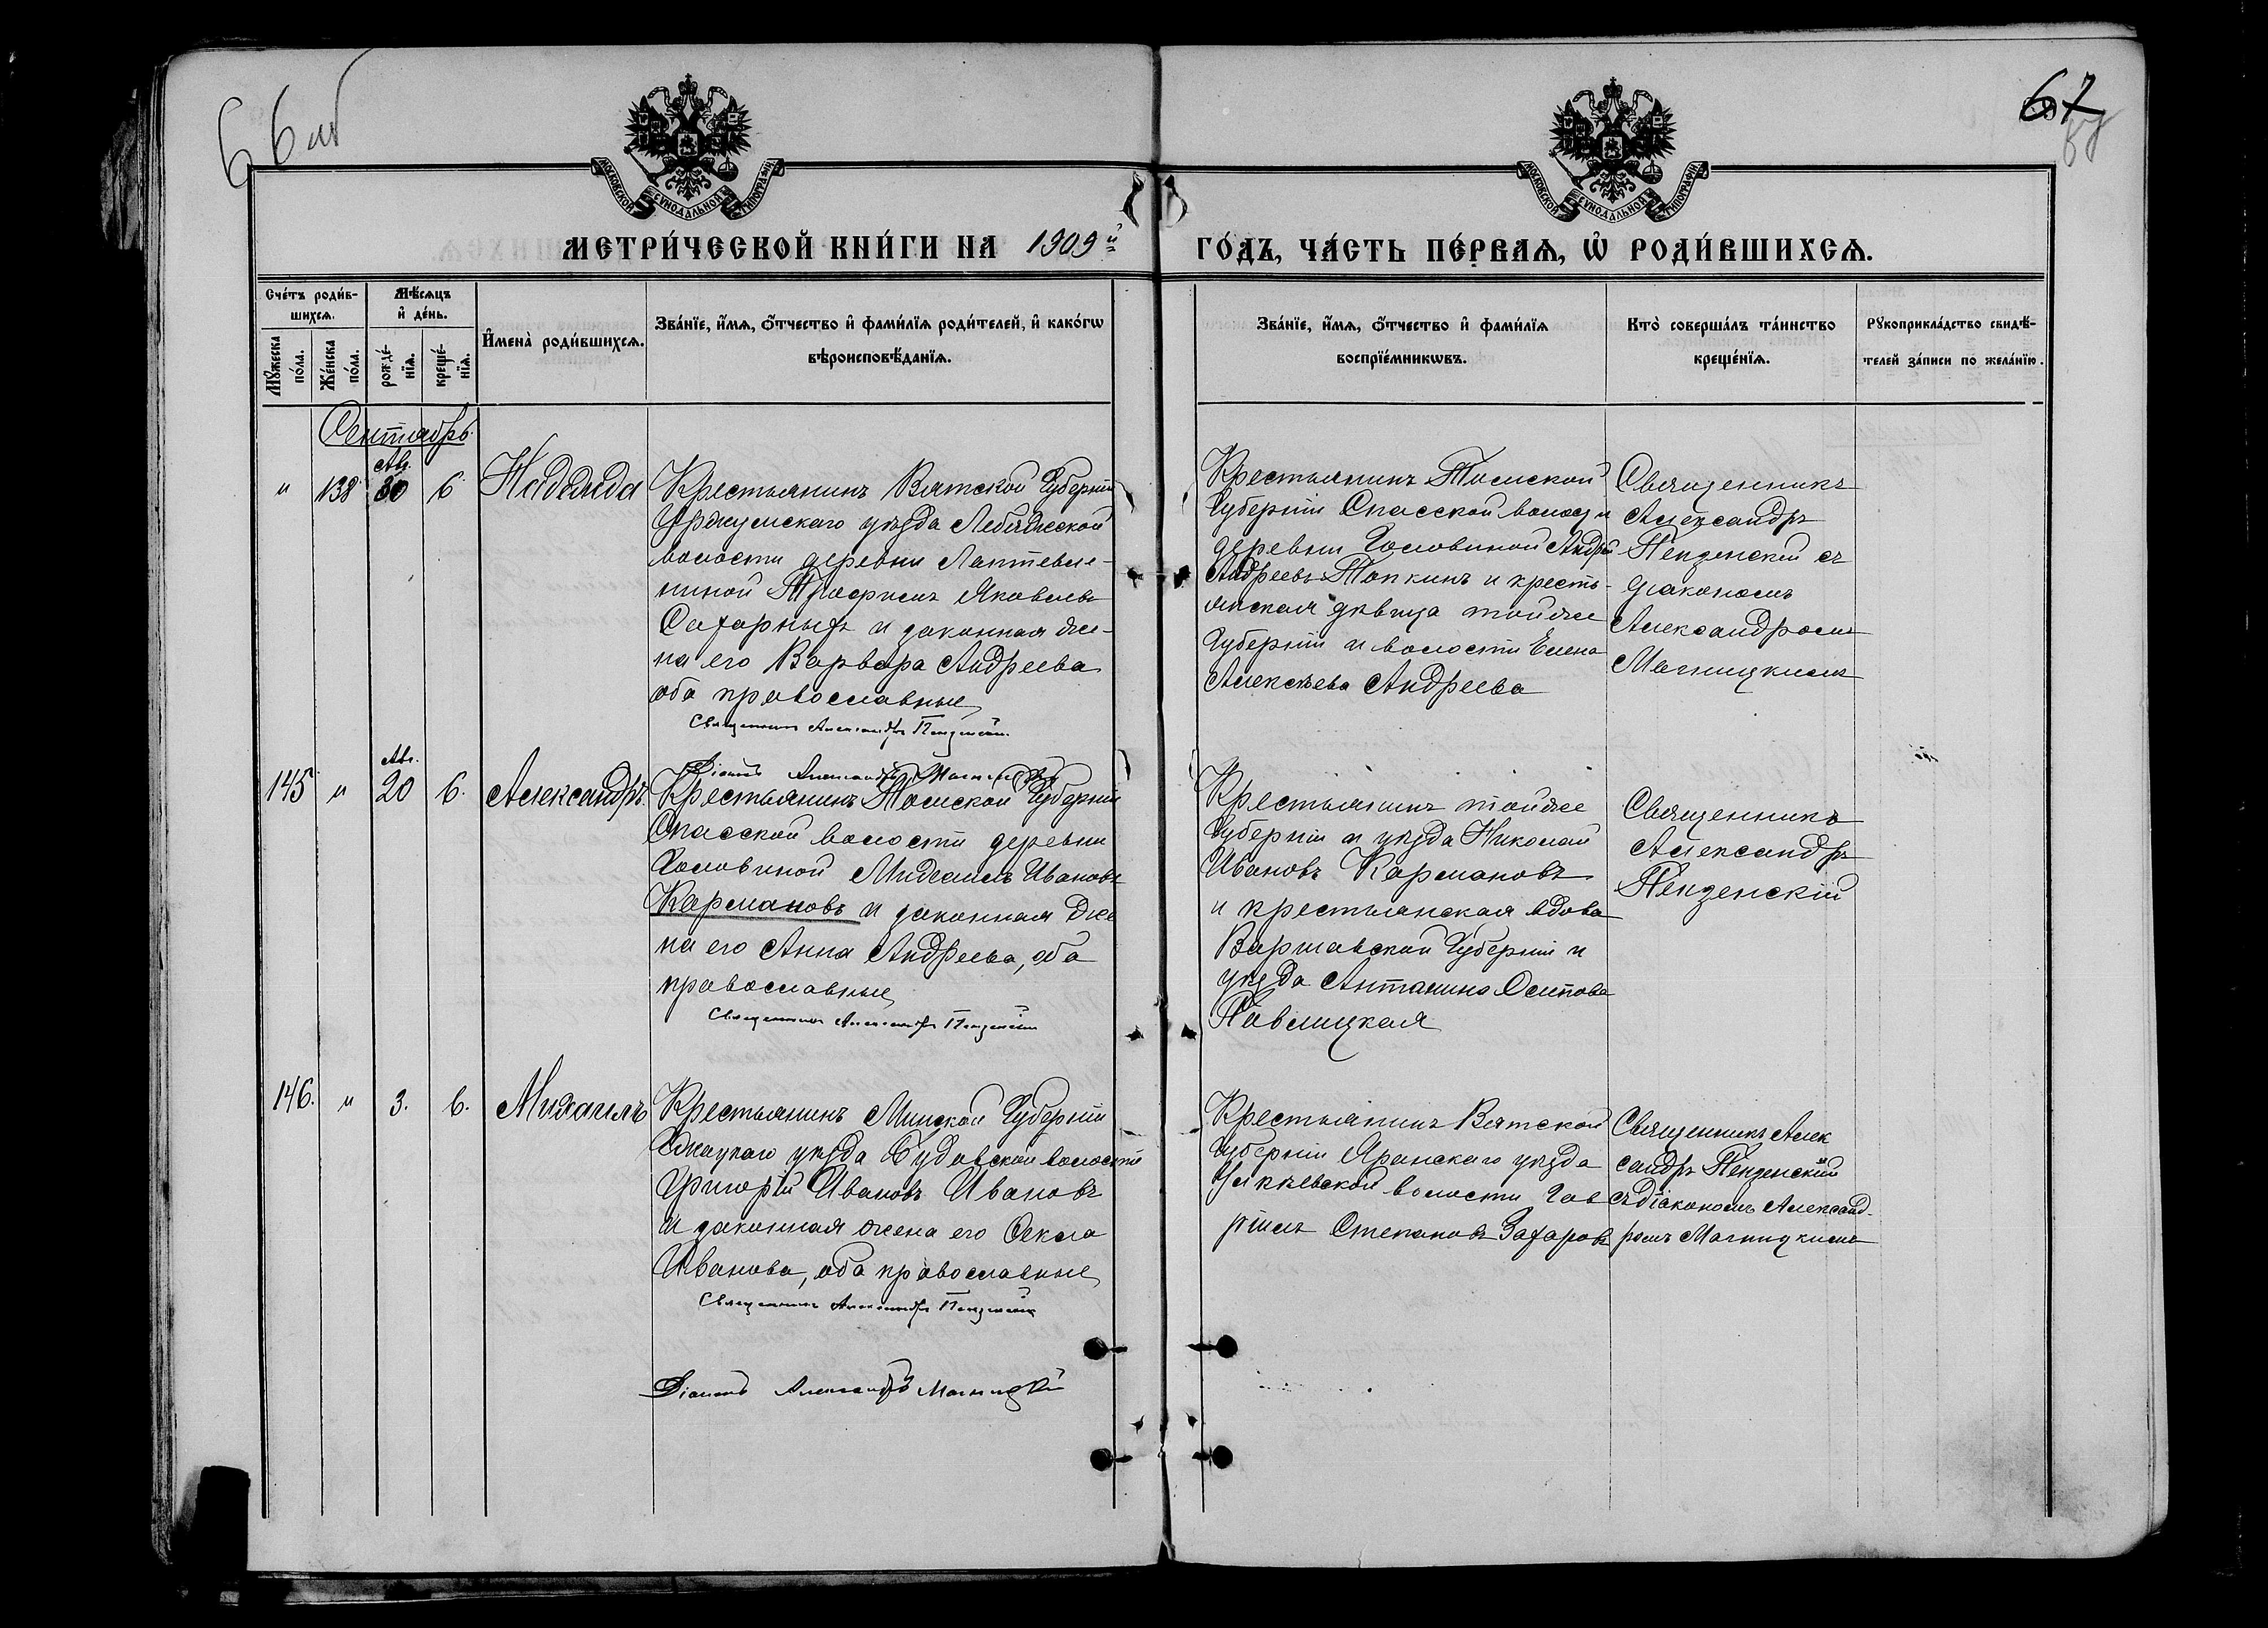 66 об
67
67
МОСКОВСКОЙ СѴНОДАЛЬНОЙ ТИПОГРАФІИ
МОСКОВСКОЙ СѴНОДАЛЬНОЙ ТИПОГРАФІИ
МЕТРИ́ЧЕСКОЙ КНИ́ГИ НА 1909й
ГО́ДЪ, ЧА́СТЬ ПЕ́РВАѦ, Ѡ҆ РОДИ́ВШИХСѦ.
Сче́тъ роди́в-
шихсѧ.
Мѣ́сѧцъ
и҆ де́нь.
Мꙋ́жеска
по́ла.
Же́нска
по́ла.
рожде́-
нїѧ.
креще́-
нїѧ.
И҆мена̀ роди́вшихсѧ.
Зва́нїе, и҆́мѧ, ѻ҆́тчество и҆ фами́лїѧ роди́телей, и҆ како́гѡ
вѣроисповѣ́данїѧ.
Зва́нїе, и҆́мѧ, ѻ҆́тчество и҆ фами́лїѧ
воспрїе́мникѡвъ.
Кто̀ соверша́лъ та́инство
креще́нїѧ.
Рꙋкоприкла́дство свидѣ́-
телей за́писи по жела́нїю.
Сентябрь.
Авг.
" 138 30 6 Надежда
Крестьянинъ Вятской Губерніи
Уржумскаго уѣзда Лебяжской
волости деревни Лаптевше-
ниной Трофимъ Яковлевъ
Сахарныхъ и законная же-
на его Варвара Андреева
оба православные
Священникъ Александръ Пензенскій
Діаконъ Александръ Магницкій
Крестьянинъ Томской
Губерніи Спасской волости
деревни Головиной Андрей
Андреевъ Топкинъ и кресть-
янская дѣвица тойже
Губерніи и волости Елена
Алексѣева Андреева
Священникъ
Александръ
Пензенскій съ
діакономъ
Александромъ
Магницкимъ
Авг.
145 " 20 6. Александръ.
Крестьянинъ Томской Губерніи
Спасской волости деревни
Головиной Михаилъ Ивановъ
Кармановъ и законная же
на его Анна Андреева, оба
православные
Священникъ Александръ Пензенскій
Крестьянинъ тойже
Губерніи и уѣзда Николай
Ивановъ Кармановъ
и крестьянская вдова
Варшавской Губерніи и
уѣзда Антанина Осипова
Павлицкая
Священникъ
Александръ
Пензенскій
146. " 3. 6. Михаилъ
Крестьянинъ Минской Губерніи
уѣзда Будовской волости
Григорій Ивановъ Ивановъ
и законная жена его Фекла
Иванова, оба православные
Священникъ Александръ Пензенскій
Діаконъ Александръ Магницкій
Крестьянинъ Вятской
Губерніи Яранскаго уѣзда
волости Гав
ріилъ Степановъ Захаровъ
Священникъ Алек
сандръ Пензенскій
съ діакономъ Александ-
ромъ Магницкимъ